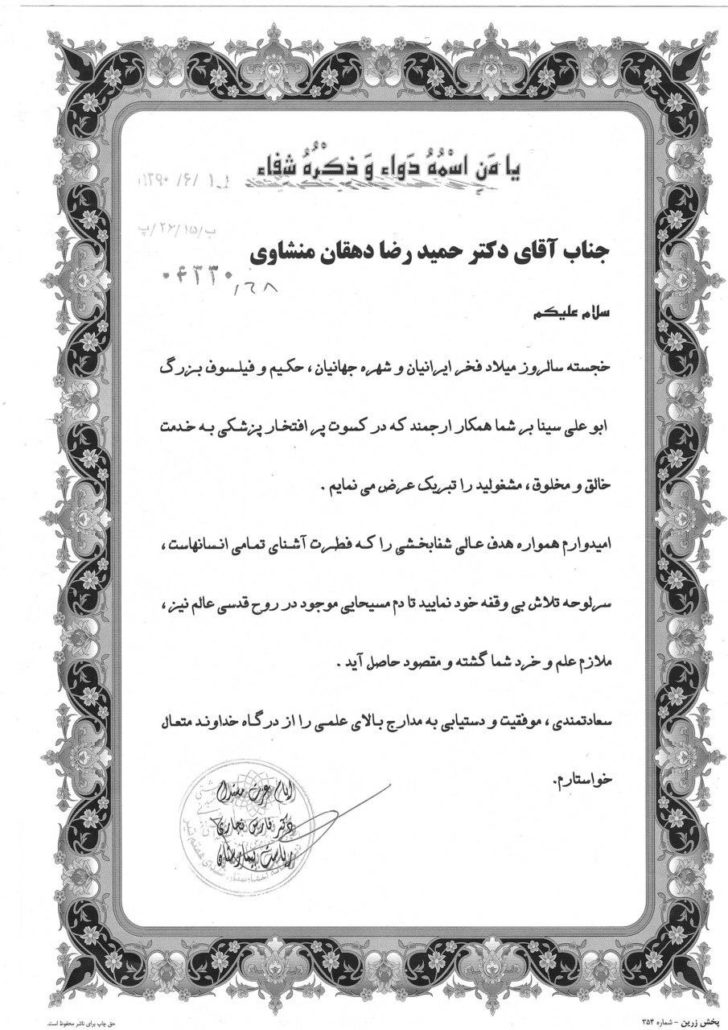 یا مَن اسْمُهُ دَواء وَ ذکْرُهُ شَفاء
۱۳۹۰/۶/۱
ب/۲۶/۱۵/پ
جناب آقای دکتر حمید رضا دهقان منشاوی
سلام علیکم
خجسته سالروز میلاد فخر ایرانیان و شهره جهانیان ، حکیم و فیلسوف بزرگ
ابو علی سینا بر شما همکار ارجمند که در کسوت پر افتخار پزشکی به خدمت
خالق و مخلوق ، مشغولید را تبریک عرض می نمایم .
امیدوارم همواره هدف عالی شفابخشی را که فطرت آشنای تمامی انسانهاست ،
سرلوحه تلاش بی وقفه خود نمایید تا دم مسیحایی موجود در روح قدسی عالم نیز ،
ملازم علم و خرد شما گشته و مقصود حاصل آید .
سعادتمندی ، موفقیت و دستیابی به مدارج بالای علمی را از درگاه خداوند متعال
خواستارم.
ایام عزت مستدام
دکتر فارس نجاری
ریاست بیمارستان
پخش زرین - شماره ۳۵۴
حق چاپ برای ناشر محفوظ است.